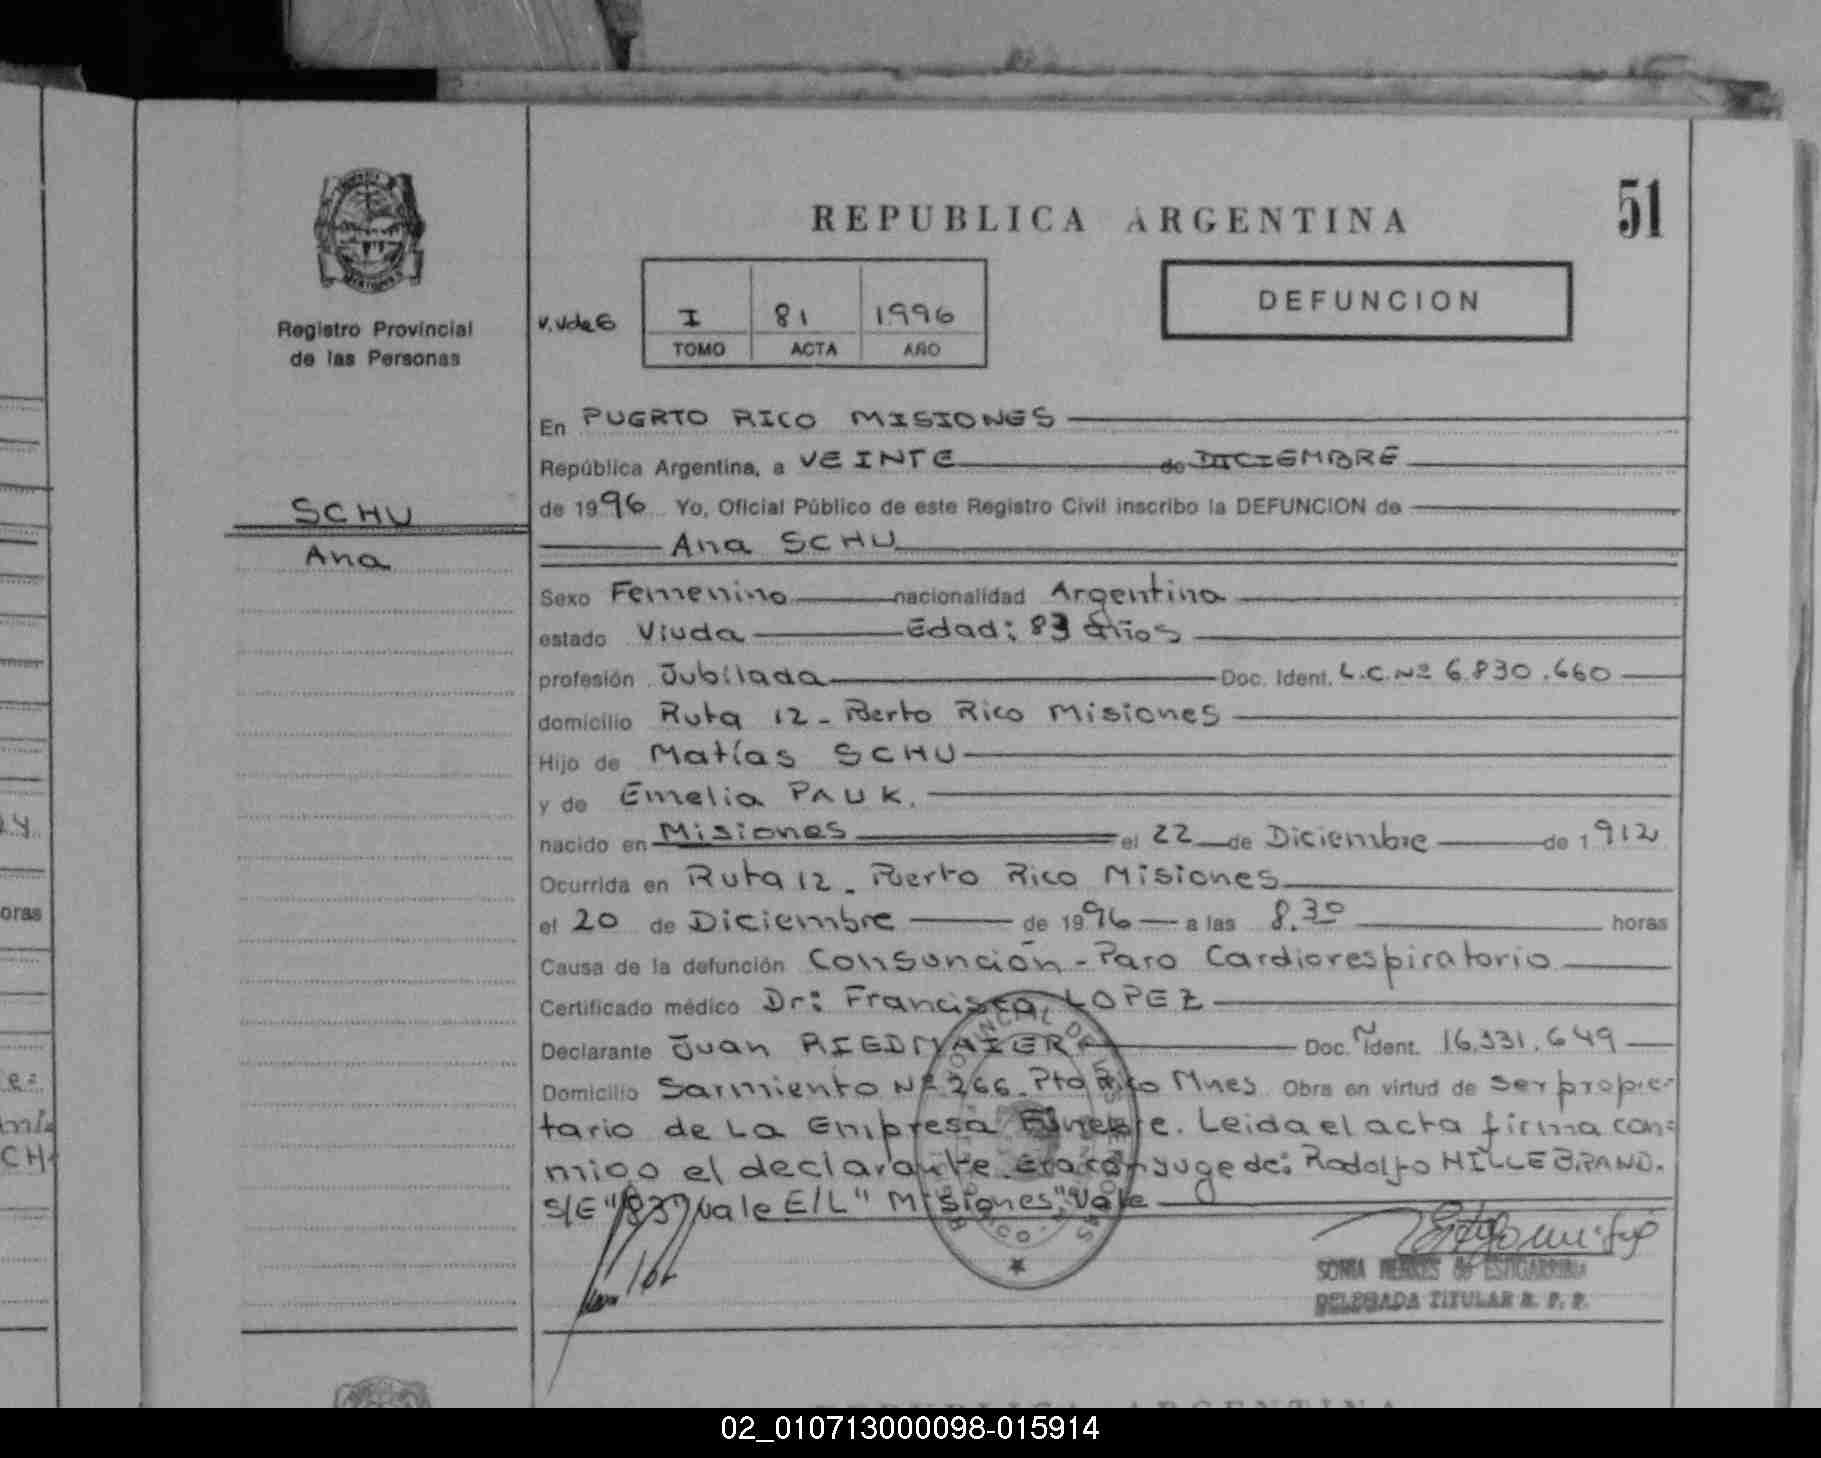 51
REPUBLICA ARGENTINA
DEFUNCION
Registro Provincial
de las Personas
I 81 1996
TOMO ACTA AÑO
SCHU
Ana
En PUERTO RICO MISIONES
República Argentina, a VEINTE de DICIEMBRE
de 1996 Yo, Oficial Público de este Registro Civil inscribo la DEFUNCION de
Ana SCHU
Sexo Femenino nacionalidad Argentina
estado Viuda Edad: 83 años
profesión Jubilada Doc. Ident. L.C. Nº 6.830.660
domicilio Ruta 12 - Puerto Rico Misiones
Hijo de Matías SCHU
y de Emelia PAUK.
nacido en Misiones el 22 de Diciembre de 1912
Ocurrida en Ruta 12 - Puerto Rico Misiones
el 20 de Diciembre de 1996 a las 8.30 horas
Causa de la defunción Consunción - Paro Cardiorespiratorio
Certificado médico Dr: Francisco LOPEZ
Declarante Juan RIEDMAIER Doc. Ident. 16.331.649
Domicilio Sarmiento Nº 266 - Pto Rico Mnes Obra en virtud de ser propie-
tario de La Empresa Fúnebre. Leida el acta firma con-
migo el declarante. Era conyuge de: Rodolfo HILLEBRAND.
S/E "83" vale E/L "Misiones" Vale
SONIA DE ESTIGARRIBIA
DELEGADA TITULAR R. P. P.
REPUBLICA ARGENTINA
02_010713000098-015914